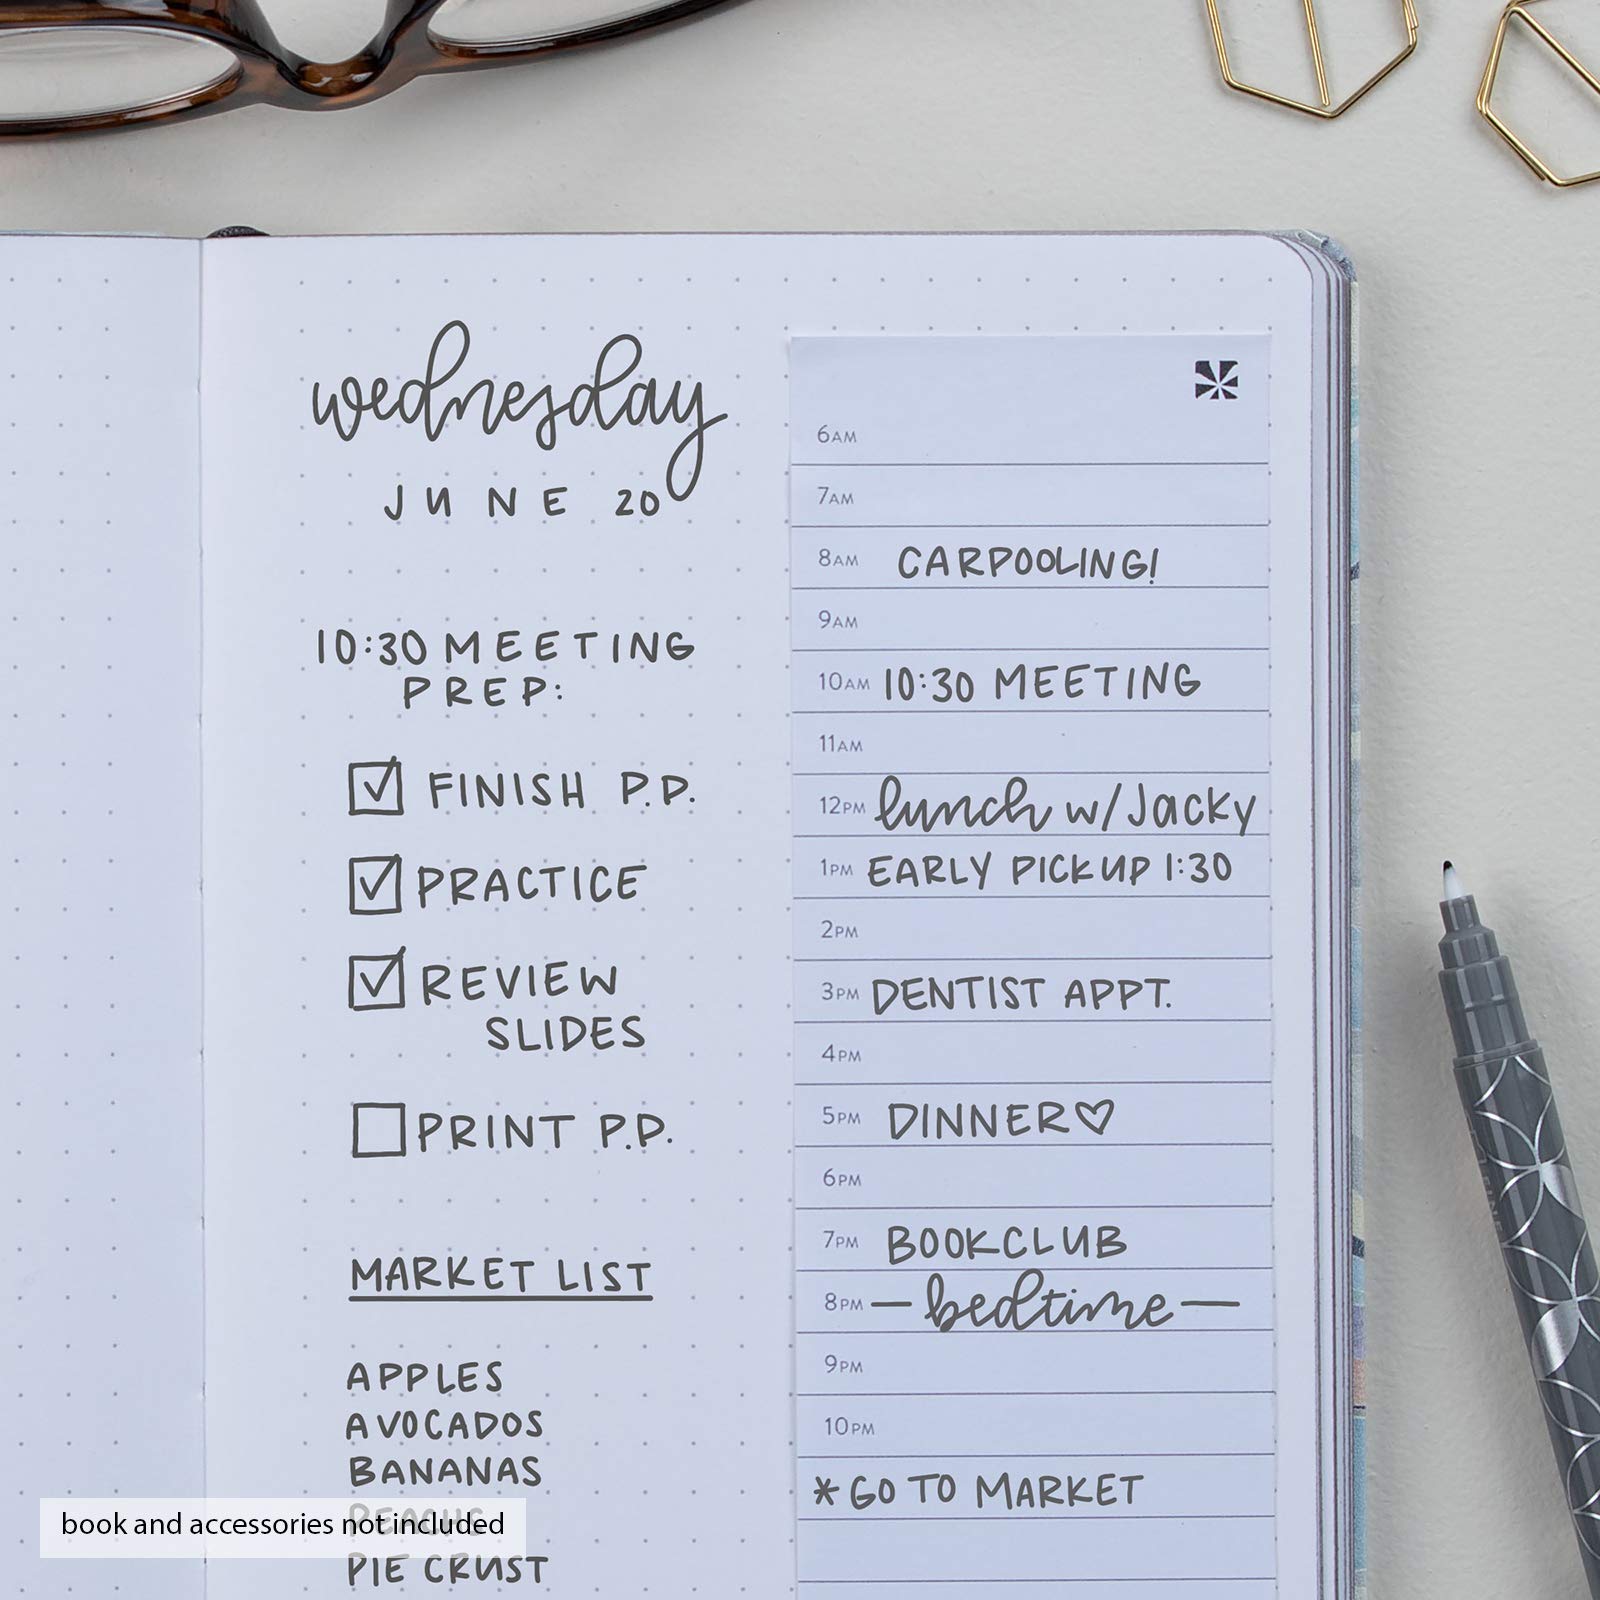 wednesday
JUNE 20
10:30 MEETING
PREP:
FINISH P.P.
PRACTICE
REVIEW
SLIDES
PRINT P.P.
MARKET LIST
APPLES
AVOCADOS
BANANAS
PIE CRUST
6AM
7AM
8AM CARPOOLING!
9AM
10AM 10:30 MEETING
11AM
12PM lunch w/ Jacky
1PM EARLY PICKUP 1:30
2PM
3PM DENTIST APPT.
4PM
5PM DINNER♡
6PM
7PM BOOKCLUB
8PM — bedtime —
9PM
10PM
* GO TO MARKET
book and accessories not included